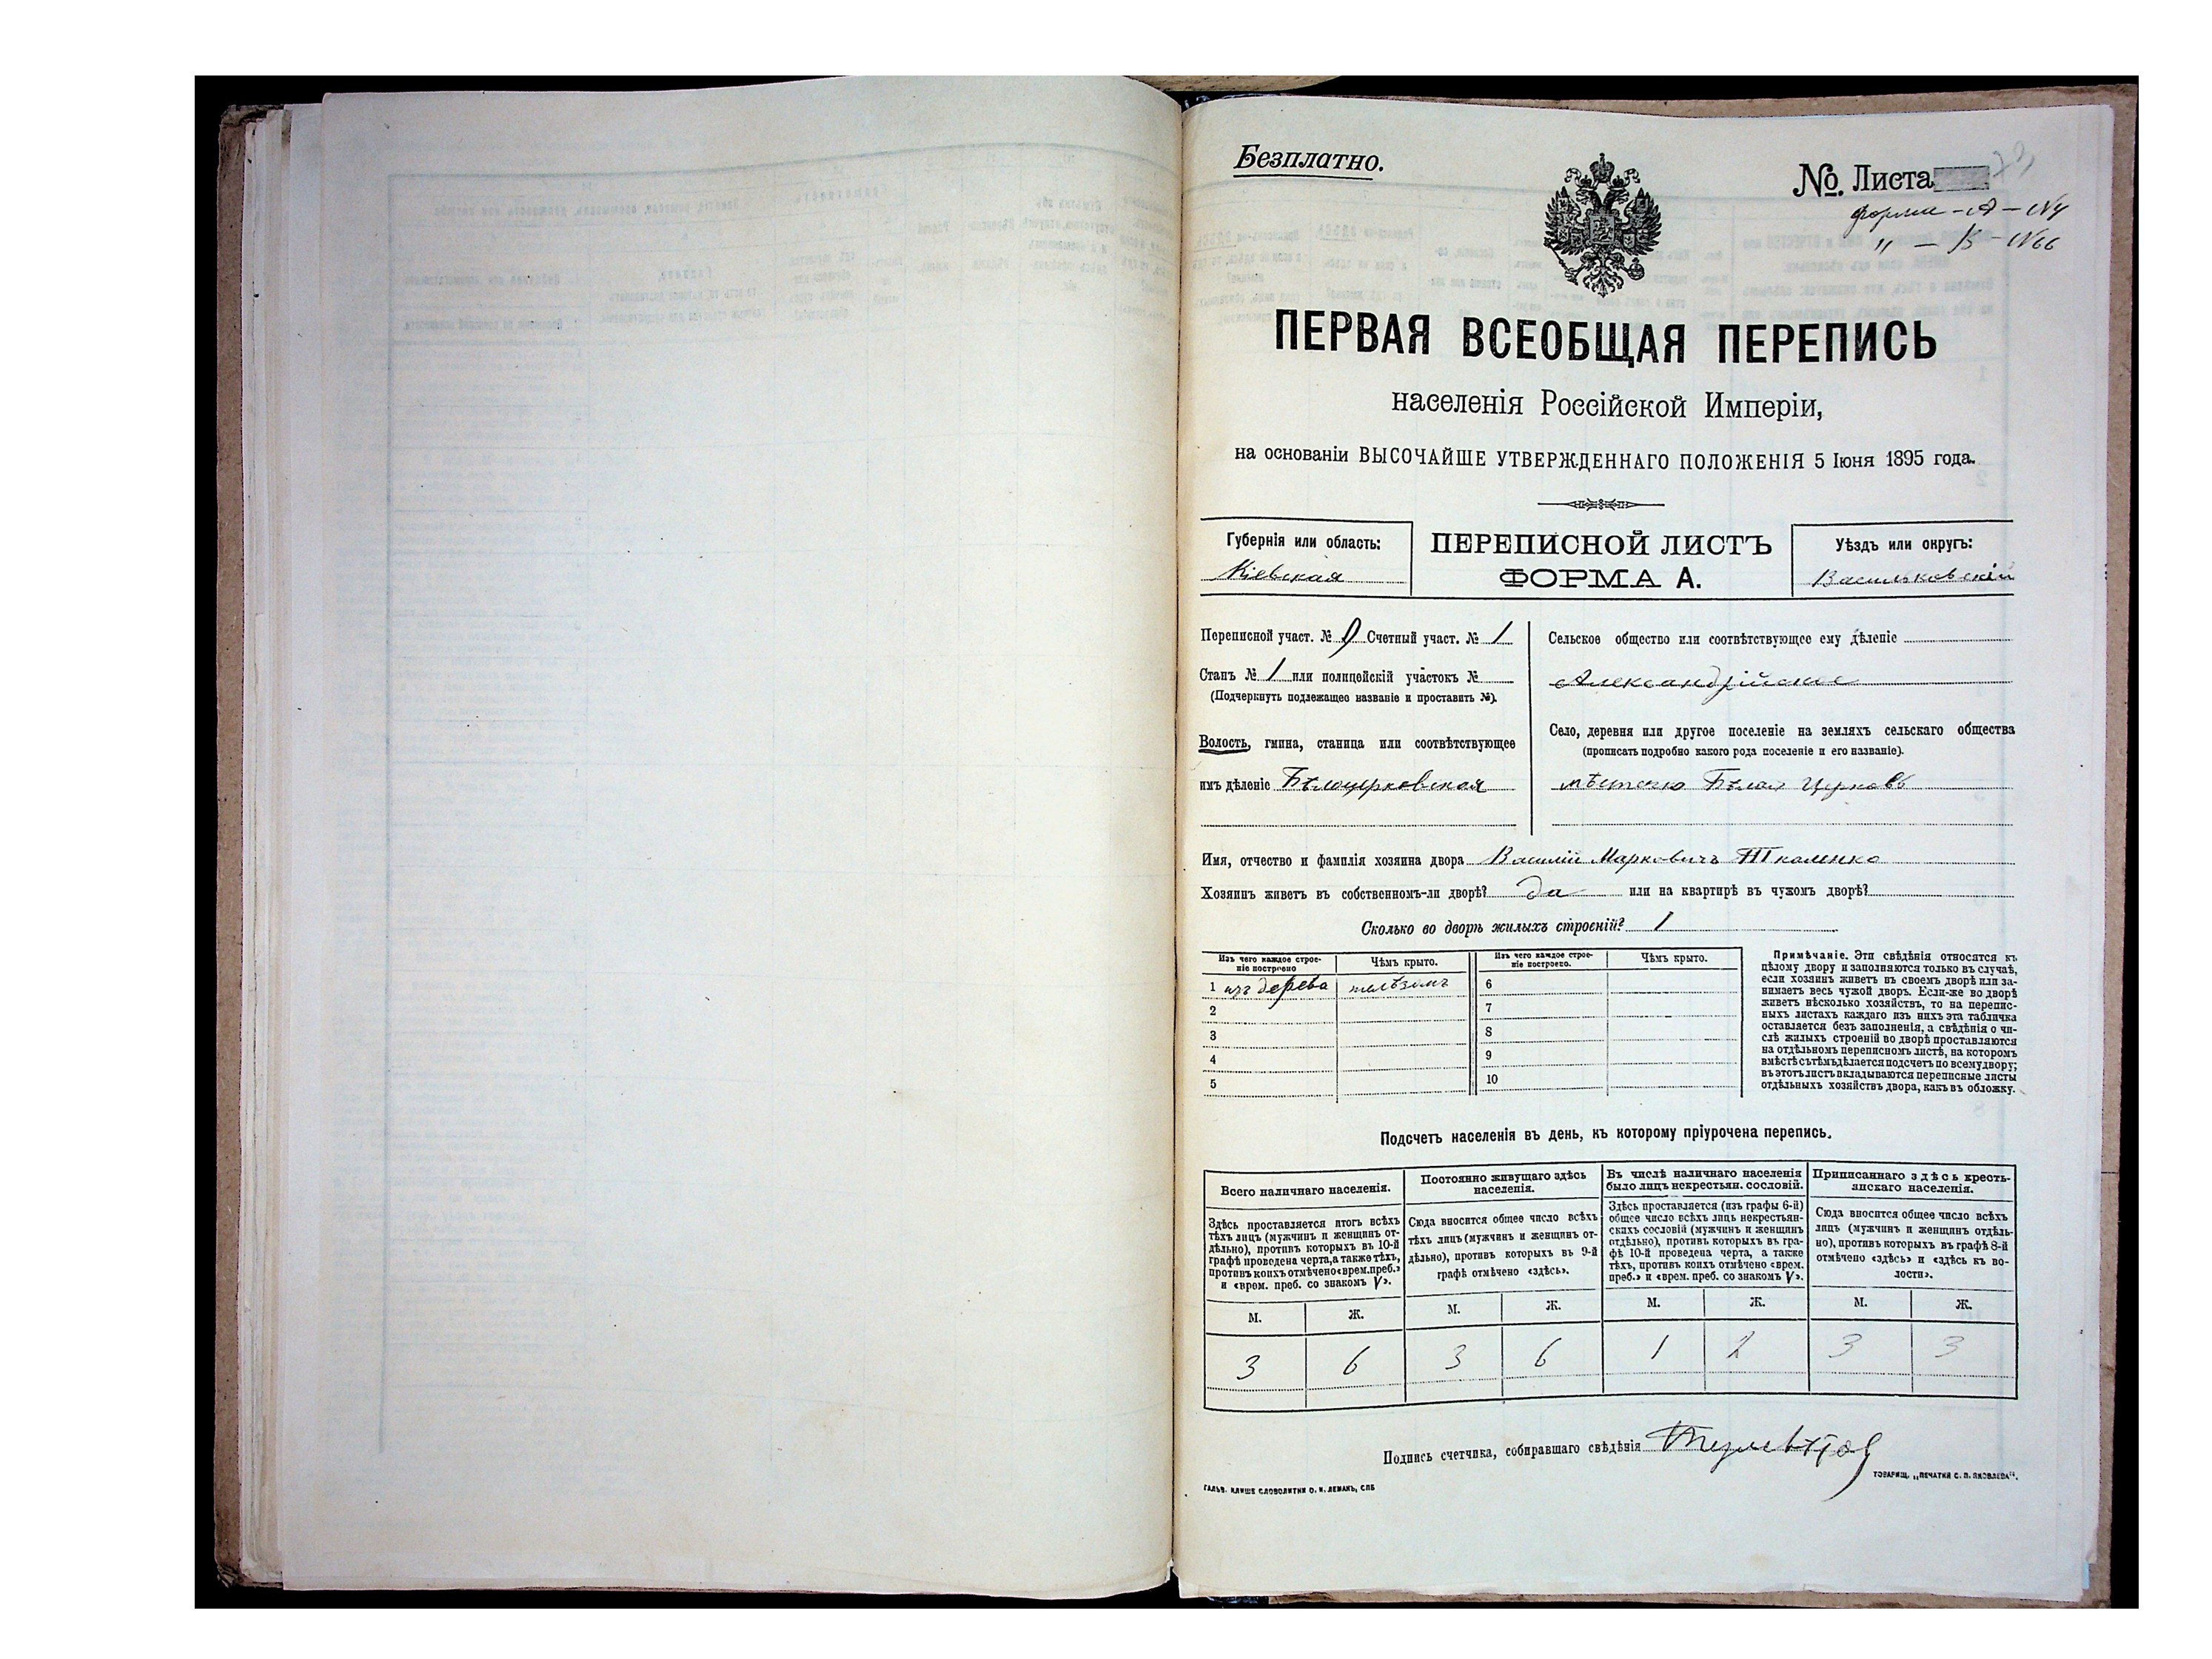 Безплатно.
№. Листа
форма - А - №4
" - Б - №66
ПЕРВАЯ ВСЕОБЩАЯ ПЕРЕПИСЬ
населенія Россійской Имперіи,
на основаніи ВЫСОЧАЙШЕ УТВЕРЖДЕННАГО ПОЛОЖЕНІЯ 5 Іюня 1895 года.
Губернія или область:
Кіевская
ПЕРЕПИСНОЙ ЛИСТЪ
ФОРМА А.
Уѣздъ или округъ:
Васильковскій
Переписной участ. № 9 Счетный участ. № 1
Станъ № 1 или полицейскій участокъ №
(Подчеркнуть подлежащее названіе и проставить №).
Волость, гмина, станица или соотвѣтствующее
имъ дѣленіе Бѣлоцерковская
Сельское общество или соотвѣтствующее ему дѣленіе
Александрійское
Село, деревня или другое поселеніе на земляхъ сельскаго общества
(прописать подробно какого рода поселеніе и его названіе).
мѣстечко Бѣлая Церковь
Имя, отчество и фамилія хозяина двора Василій Марковичъ Ткаленко
Хозяинъ живетъ въ собственномъ-ли дворѣ? да или на квартирѣ въ чужомъ дворѣ?
Сколько во дворѣ жилыхъ строеній? 1
Изъ чего каждое строе-
ніе построено
Чѣмъ крыто.
Изъ чего каждое строе-
ніе построено.
Чѣмъ крыто.
1 изъ дерева
6
2
7
3
8
4
9
5
10
Примѣчаніе. Эти свѣдѣнія относятся къ
цѣлому двору и заполняются только въ случаѣ,
если хозяинъ живетъ въ своемъ дворѣ или за-
нимаетъ весь чужой дворъ. Если-же во дворѣ
живетъ нѣсколько хозяйствъ, то на перепис-
ныхъ листахъ каждаго изъ нихъ эта табличка
оставляется безъ заполненія, а свѣдѣнія о чи-
слѣ жилыхъ строеній во дворѣ проставляются
на отдѣльномъ переписномъ листѣ, на которомъ
вмѣстѣ съ тѣмъ дѣлается подсчетъ по всему двору;
въ этотъ листъ вкладываются переписные листы
отдѣльныхъ хозяйствъ двора, какъ въ обложку.
Подсчетъ населенія въ день, къ которому пріурочена перепись.
Всего наличнаго населенія.
Здѣсь проставляется итогъ всѣхъ
тѣхъ лицъ (мужчинъ и женщинъ от-
дѣльно), противъ которыхъ въ 10-й
графѣ проведена черта, а также тѣхъ,
противъ коихъ отмѣчено «врем. преб.»
и «врем. преб. со знакомъ V».
Постоянно живущаго здѣсь
населенія.
Сюда вносится общее число всѣхъ
тѣхъ лицъ (мужчинъ и женщинъ от-
дѣльно), противъ которыхъ въ 9-й
графѣ отмѣчено «здѣсь».
Въ числѣ наличнаго населенія
было лицъ некрестьян. сословій.
Здѣсь проставляется (изъ графы 6-й)
общее число всѣхъ лицъ некрестьян-
скихъ сословій (мужчинъ и женщинъ
отдѣльно), противъ которыхъ въ гра-
фѣ 10-й проведена черта, а также
тѣхъ, противъ коихъ отмѣчено «врем.
преб.» и «врем. преб. со знакомъ V».
Приписаннаго здѣсь кресть-
янскаго населенія.
Сюда вносится общее число всѣхъ
лицъ (мужчинъ и женщинъ отдѣль-
но), противъ которыхъ въ графѣ 8-й
отмѣчено «здѣсь» и «здѣсь къ во-
лости».
М. Ж. М. Ж. М. Ж. М. Ж.
3 6 3 6 1 2 3 3
Подпись счетчика, собиравшаго свѣдѣнія
ГАЛЬВ. КЛИШЕ СЛОВОЛИТНИ О. И. ЛЕМАНЪ, СПБ
ТОВАРИЩ. „ПЕЧАТНЯ С. П. ЯКОВЛЕВА“.